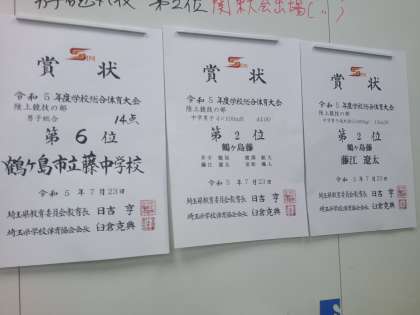 第2位 関東大会出場(..)
賞状
令和5年度学校総合体育大会
陸上競技の部
男子総合 14点
第6位
鶴ヶ島市立藤中学校
令和5年7月23日
埼玉県教育委員会教育長 日吉 亨
埼玉県学校体育協会会長 臼倉克典
賞状
令和5年度学校総合体育大会
陸上競技の部
第2位
鶴ヶ島藤
令和5年7月23日
埼玉県教育委員会教育長 日吉 亨
埼玉県学校体育協会会長 臼倉克典
賞状
令和5年度学校総合体育大会
陸上競技の部
第2位
鶴ヶ島藤
藤江 遼太
令和5年7月23日
埼玉県教育委員会教育長 日吉 亨
埼玉県学校体育協会会長 臼倉克典